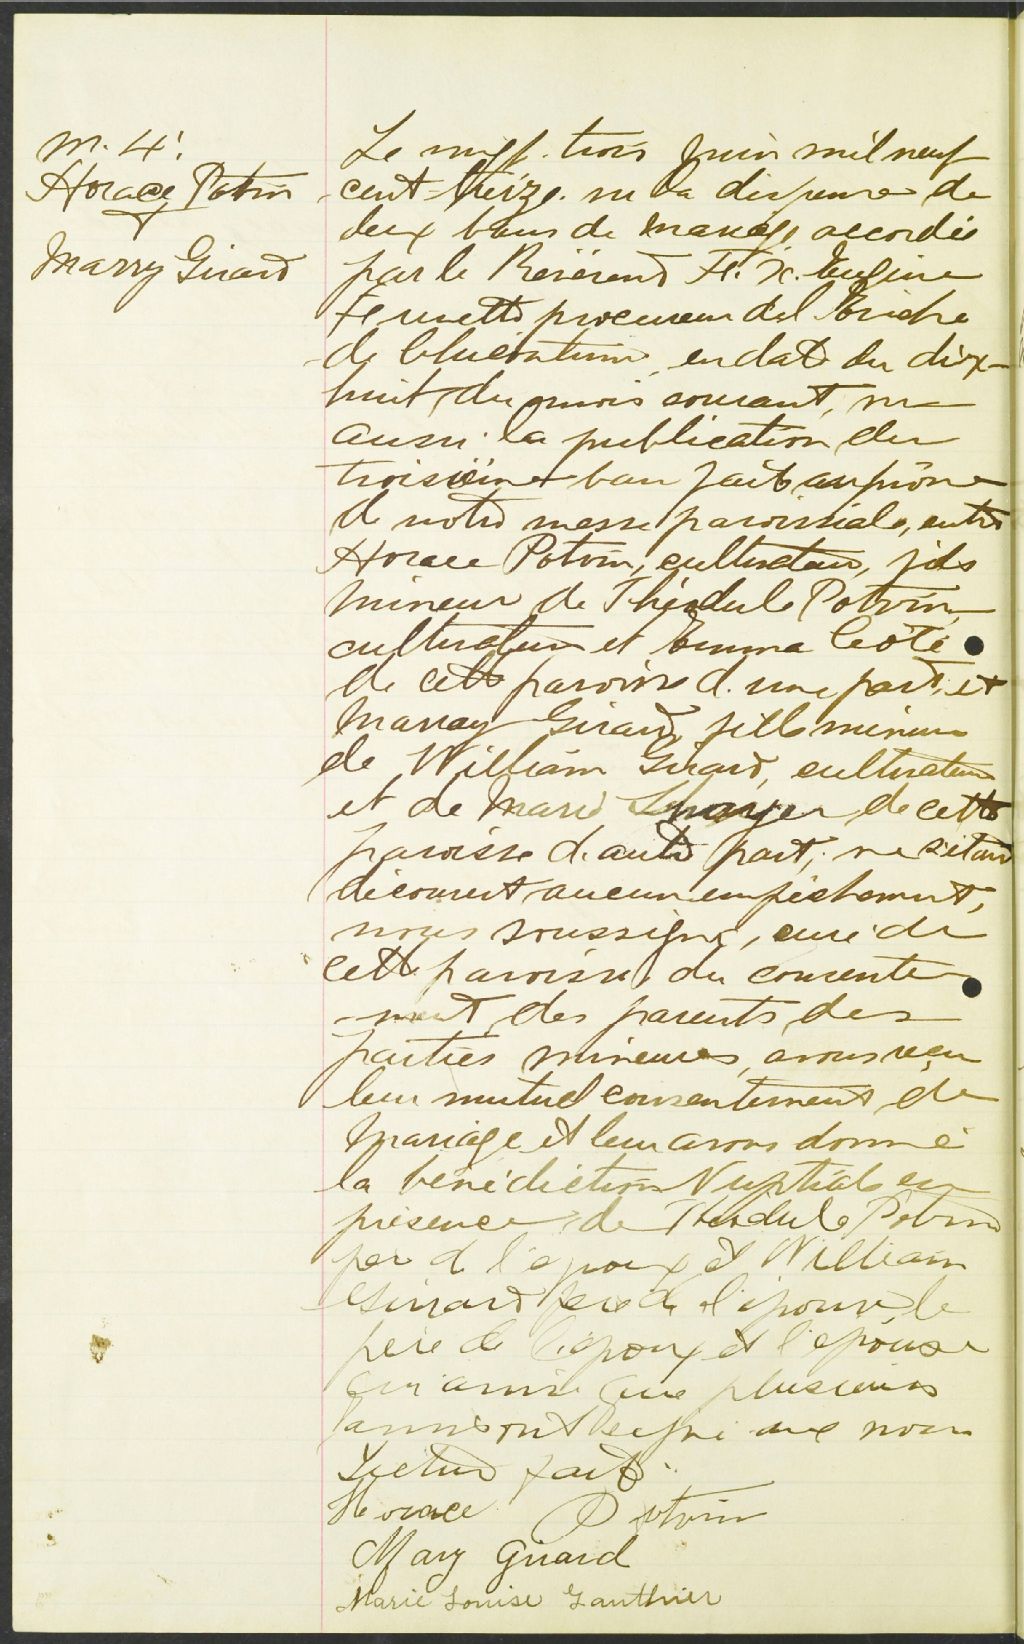 m. 4'.
Horace Potvin
&
Marry Girard
Le vingt-trois Juin mil neuf
cent treize. vu la dispense de
deux bans de mariage accordée
par le Révérend F. X. Eugène
Frenette procureur de l'Evêché
de Chicoutimi, en date du dix-
huit du mois courant, vu
aussi la publication du
troisième ban fait au prône
de notre messe paroissiale, entre
Horace Potvin, cultivateur, fils
mineur de Théodule Potvin,
cultivateur et Emma Coté
de cette paroisse d'une part, et
Marray Girard, fille mineure
de William Girard, cultivateur
et de Marie de cette
paroisse d'autre part; ne s'étant
découvert aucun empêchement,
nous soussigné, curé de
cette paroisse, du consente
-ment des parents des
parties mineures, avons reçu
leur mutuel consentement de
Mariage et leur avons donné
la bénédiction Nuptiale en
présence de Théodule Potvin
père de l'époux et William
Girard père de l'épouse, le
père de l'époux et l'épouse
ainsi que plusieurs
ont signé avec nous
Lecture faite.
Horace Potvin
Mary Girard
Marie Louise Gauthier